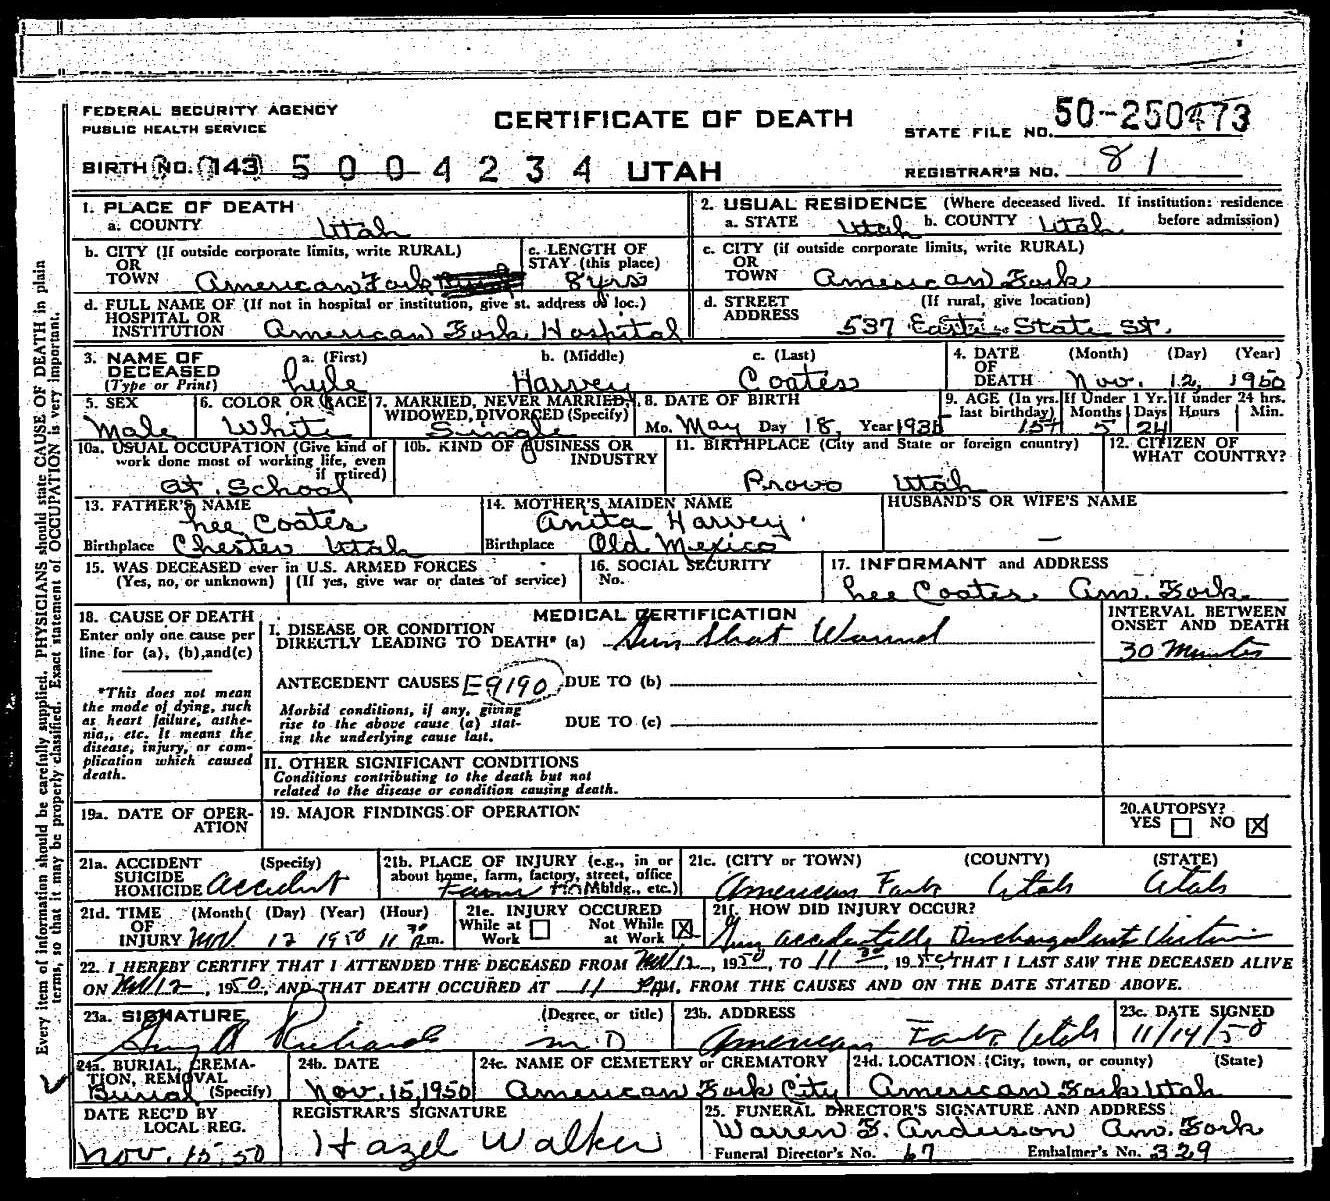 FEDERAL SECURITY AGENCY
PUBLIC HEALTH SERVICE
CERTIFICATE OF DEATH
STATE FILE NO. 50-250473
BIRTH NO. 143 5004234 UTAH
REGISTRAR'S NO. 81
Every item of information should be carefully supplied. PHYSICIANS should state CAUSE OF DEATH in plain
terms, so that it may be properly classified. Exact statement of OCCUPATION is very important.
1. PLACE OF DEATH
a. COUNTY Utah
2. USUAL RESIDENCE (Where deceased lived. If institution: residence before admission)
a. STATE Utah b. COUNTY Utah
b. CITY (If outside corporate limits, write RURAL) OR TOWN American Fork
c. LENGTH OF STAY (this place) 8 yrs
c. CITY (if outside corporate limits, write RURAL) OR TOWN American Fork
d. FULL NAME OF (If not in hospital or institution, give st. address or loc.) HOSPITAL OR INSTITUTION American Fork Hospital
d. STREET ADDRESS (If rural, give location) 537 East State St.
3. NAME OF DECEASED (Type or Print)
a. (First) Lyle b. (Middle) Harvey c. (Last) Coates
4. DATE OF DEATH (Month) (Day) (Year) Nov. 12, 1950
5. SEX Male
6. COLOR OR RACE White
7. MARRIED, NEVER MARRIED, WIDOWED, DIVORCED (Specify) Single
8. DATE OF BIRTH Mo. May Day 18, Year 1935
9. AGE (In yrs. last birthday) 15 If Under 1 Yr. Months 5 Days 24 If under 24 hrs. Hours Min.
10a. USUAL OCCUPATION (Give kind of work done most of working life, even if retired) at School
10b. KIND OF BUSINESS OR INDUSTRY
11. BIRTHPLACE (City and State or foreign country) Provo Utah
12. CITIZEN OF WHAT COUNTRY?
13. FATHER'S NAME Lee Coates
Birthplace Chester Utah
14. MOTHER'S MAIDEN NAME Anita Harvey
Birthplace Old Mexico
HUSBAND'S OR WIFE'S NAME —
15. WAS DECEASED ever in U.S. ARMED FORCES
(Yes, no, or unknown) (If yes, give war or dates of service)
16. SOCIAL SECURITY No.
17. INFORMANT and ADDRESS
Lee Coates Am. Fork
18. CAUSE OF DEATH
Enter only one cause per line for (a), (b), and (c)
*This does not mean the mode of dying, such as heart failure, asthenia,, etc. It means the disease, injury, or complication which caused death.
MEDICAL CERTIFICATION
I. DISEASE OR CONDITION DIRECTLY LEADING TO DEATH* (a) Gun Shot Wound
INTERVAL BETWEEN ONSET AND DEATH
30 Minutes
ANTECEDENT CAUSES E9190 DUE TO (b)
Morbid conditions, if any, giving rise to the above cause (a) stating the underlying cause last.
DUE TO (c)
II. OTHER SIGNIFICANT CONDITIONS
Conditions contributing to the death but not related to the disease or condition causing death.
19a. DATE OF OPERATION
19. MAJOR FINDINGS OF OPERATION
20. AUTOPSY?
YES NO X
21a. ACCIDENT SUICIDE HOMICIDE (Specify) Accident
21b. PLACE OF INJURY (e.g., in or about home, farm, factory, street, office bldg., etc.) Farm
21c. (CITY or TOWN) (COUNTY) (STATE)
American Fork Utah Utah
21d. TIME OF INJURY (Month) (Day) (Year) (Hour) Nov 12 1950 11 m.
21e. INJURY OCCURED
While at Work Not While at Work X
21f. HOW DID INJURY OCCUR?
Gun accidentally Discharged Victim
22. I HEREBY CERTIFY THAT I ATTENDED THE DECEASED FROM Nov 12, 1950, TO 11 30, 19, THAT I LAST SAW THE DECEASED ALIVE
ON Nov 12, 1950, AND THAT DEATH OCCURED AT 11 P.M., FROM THE CAUSES AND ON THE DATE STATED ABOVE.
23a. SIGNATURE (Degree, or title)
Guy Richards M.D
23b. ADDRESS
American Fork Utah
23c. DATE SIGNED
11/14/50
24a. BURIAL, CREMATION, REMOVAL (Specify) Burial
24b. DATE
Nov. 15, 1950
24c. NAME OF CEMETERY or CREMATORY
American Fork City
24d. LOCATION (City, town, or county) (State)
American Fork Utah
DATE REC'D BY LOCAL REG.
Nov. 15, 50
REGISTRAR'S SIGNATURE
Hazel Walker
25. FUNERAL DIRECTOR'S SIGNATURE AND ADDRESS
Warren F. Anderson Am. Fork
Funeral Director's No. 67 Embalmer's No. 329